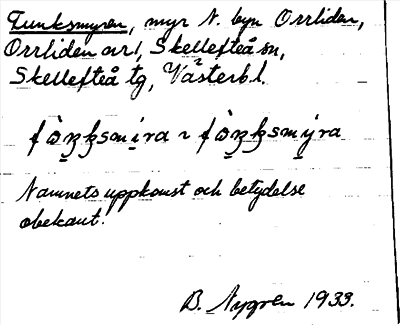 Funksmyren, myr N. byn Orrliden,
Orrliden avr, Skellefteå sn,
Skellefteå tg, Västerb. l.
Namnets uppkomst och betydelse
obekant.
B. Nygren 1933.